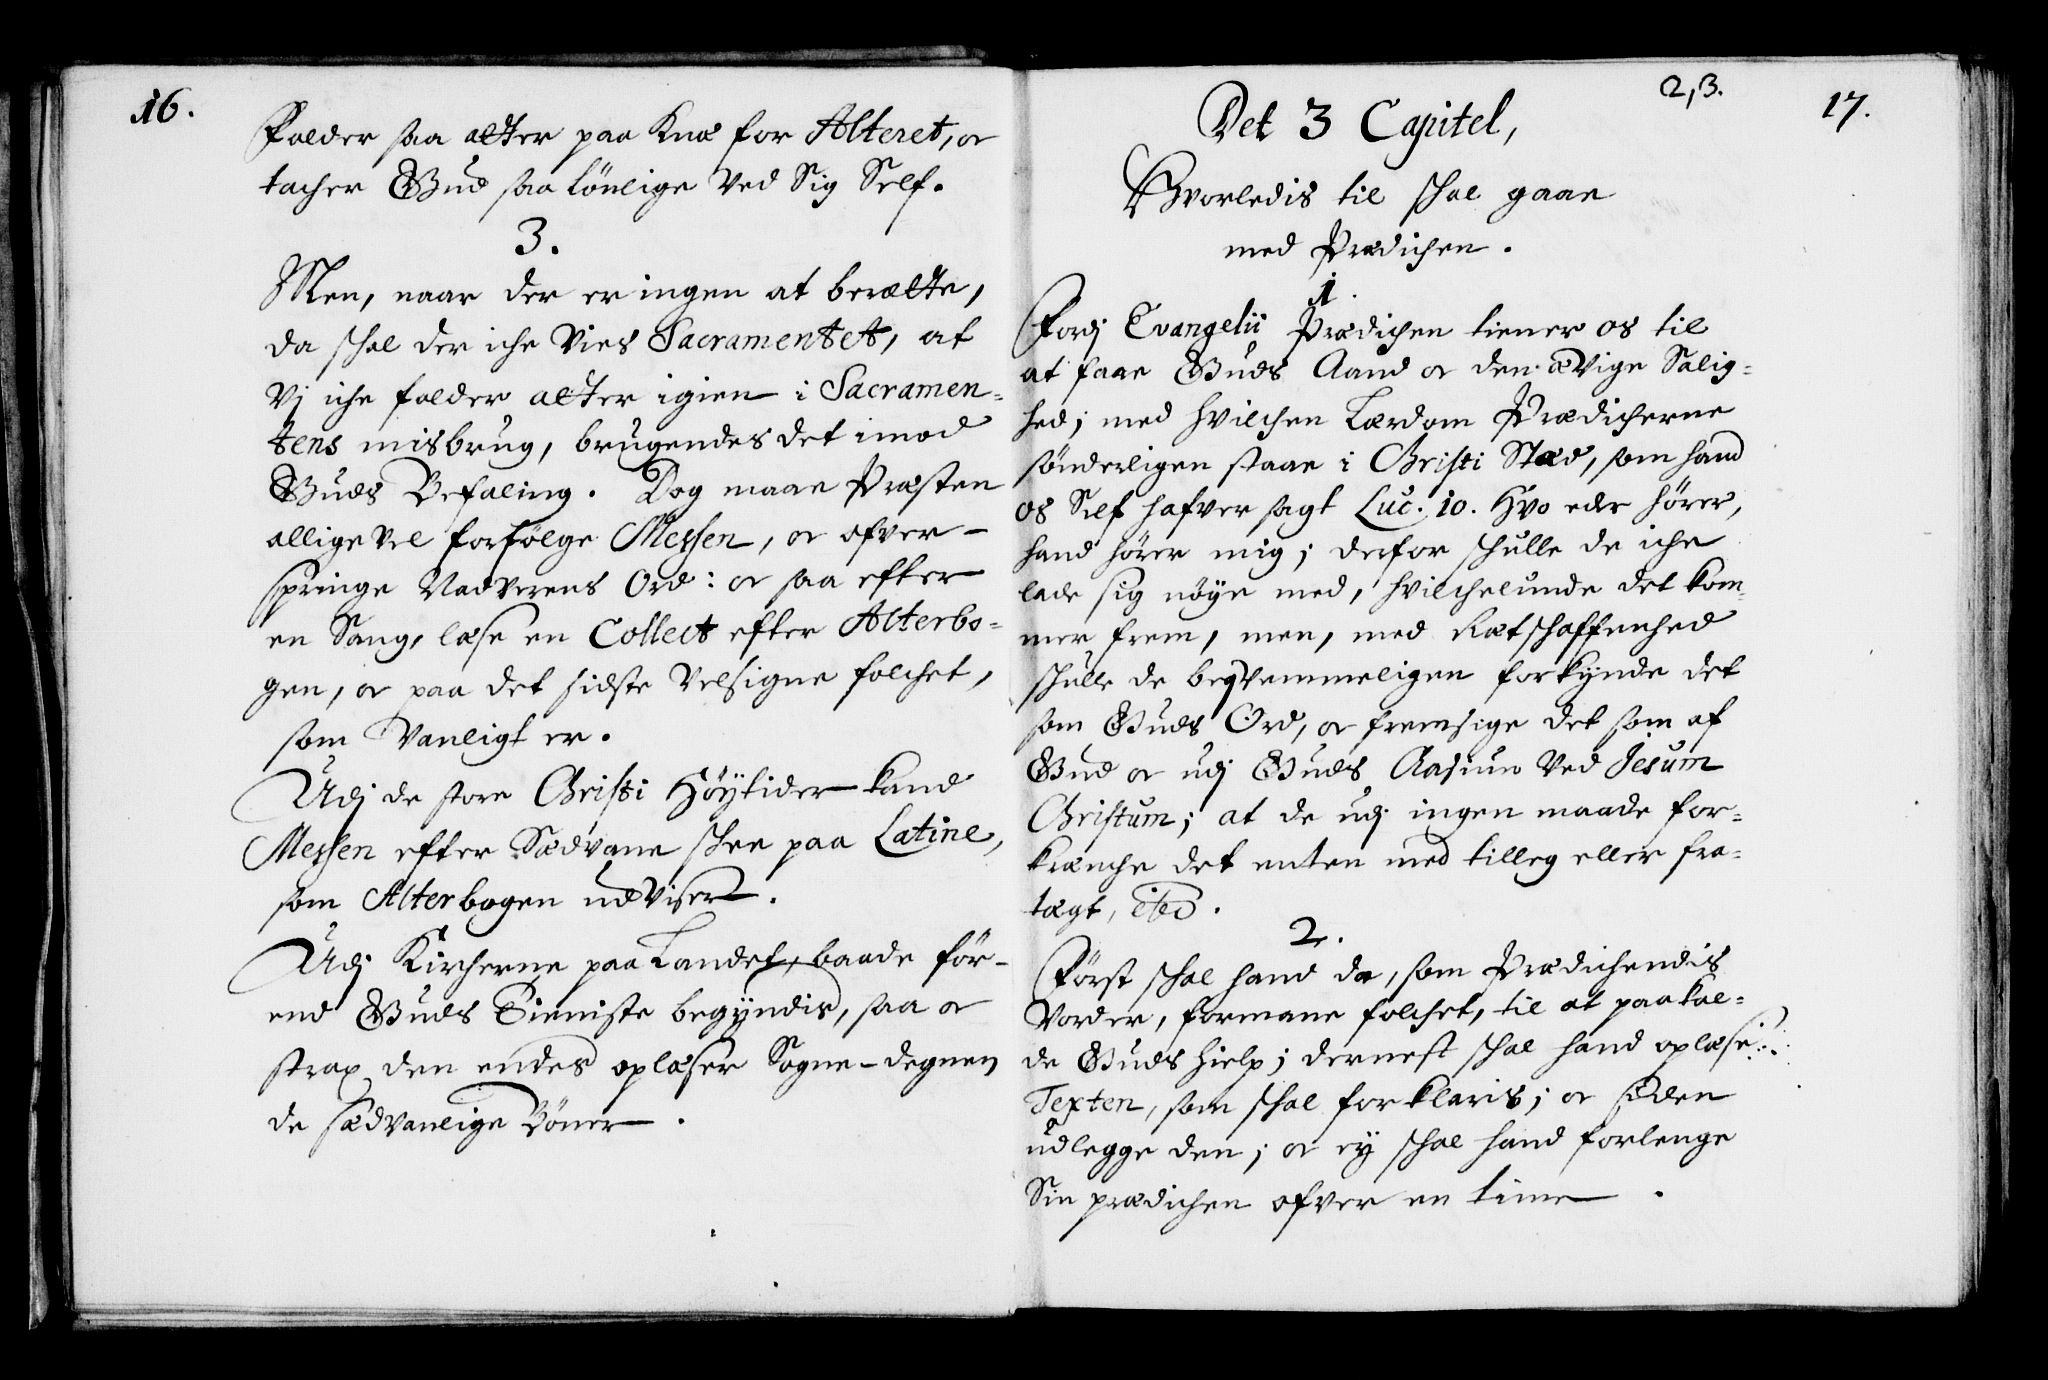 16.
Falder saa atter paa Knæ for Alteret, oc
tacher Gud saa lönlige ved Sig Self.
3.
Men, naar der er ingen at berætte,
da schal der iche vies Sacramentet, at
vj iche falder atter igien i Sacramen-
tens misbrug, brugendes det imod
Guds Befaling. Dog maae Præsten
alligevel forfölge Messen, oc ofver-
springe Nadverens Ord: oc saa efter
en Sang, læse en Collect efter Alterbo-
gen, oc paa det sidste velsigne folchet,
som vanligt er.
Udj de store Christi Höytider kand
Messen efter Sædvane schee paa Latine,
som Alterbogen udviser.
Udj Kircherne paa Landet, baade för-
end Guds Tieniste begyndis, saa oc
strax den endes oplæser Sogne-degnen
de sædvanlige Böner.
2,3.
17.
Det 3 Capitel,
Hvorledis til schal gaae
med Prædichen.
1.
Fordj Evangelii Prædichen tiener os til
at faae Guds Aand oc den ævige Salig-
hed; med hvilchen Lærdom Prædicherne
sönderligen staae i Christi Stæd, som hand
os Self hafver sagt Luc. 10. Hvo eder hörer,
hand hörer mig; derfor schulle de iche
lade sig nöye med, hvilchelunde det kom-
mer frem, men, med Rætschaffenhed
schulle de beqvemmeligen forkynde det
som Guds Ord, oc fremsige det som af
Gud oc udj Guds Aasiun ved Jesum
Christum; at de udj ingen maade for-
krænche det enten med tilleg eller fra-
tægt, etc.
2.
Först schal hand da, som Prædichendis
vorder, formane folchet, til at paakal-
de Guds hielp; dernest schal hand oplæse
Texten, som schal forklaris; oc siden
udlegge den; oc ey schal hand forlenge
Sin prædichen ofver en time.